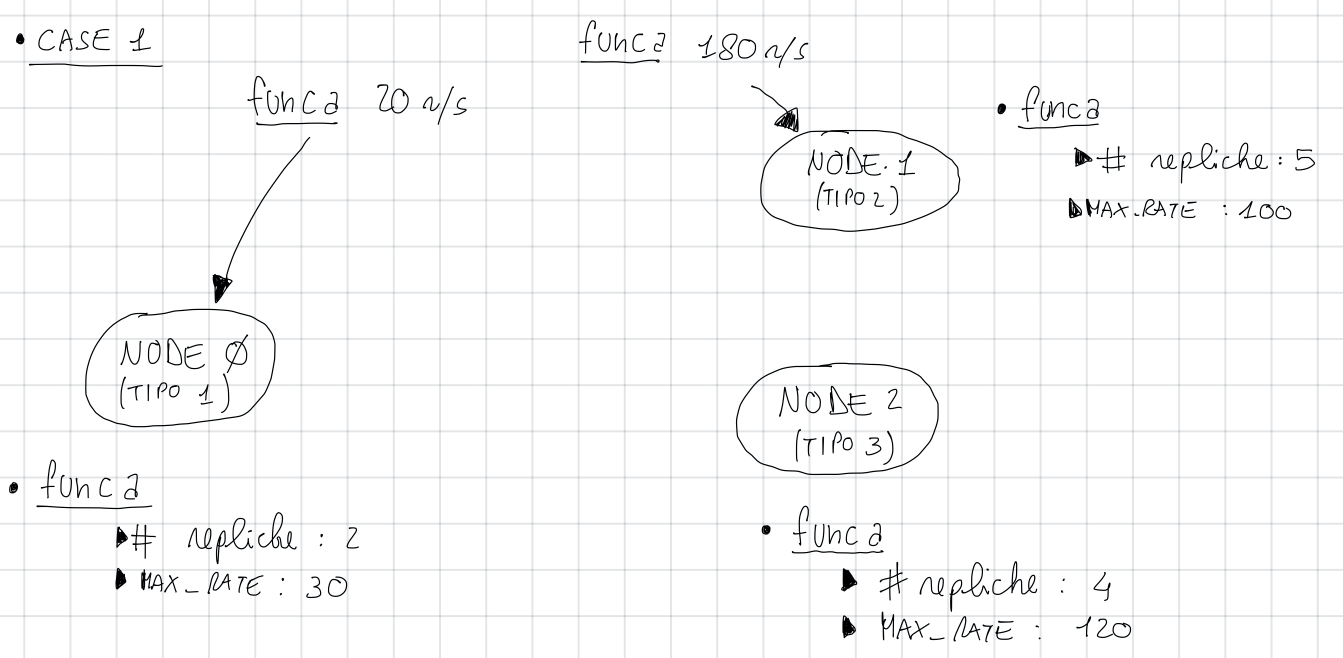 • CASE 1
funca 20 r/s
NODE Ø
(TIPO 1)
• funca
▶# repliche : 2
▶ MAX_RATE : 30
funca 180 r/s
NODE 1
(TIPO 2)
• funca
▶# repliche : 5
▶MAX_RATE : 100
NODE 2
(TIPO 3)
• funca
▶ # repliche : 4
▶ MAX_RATE : 120